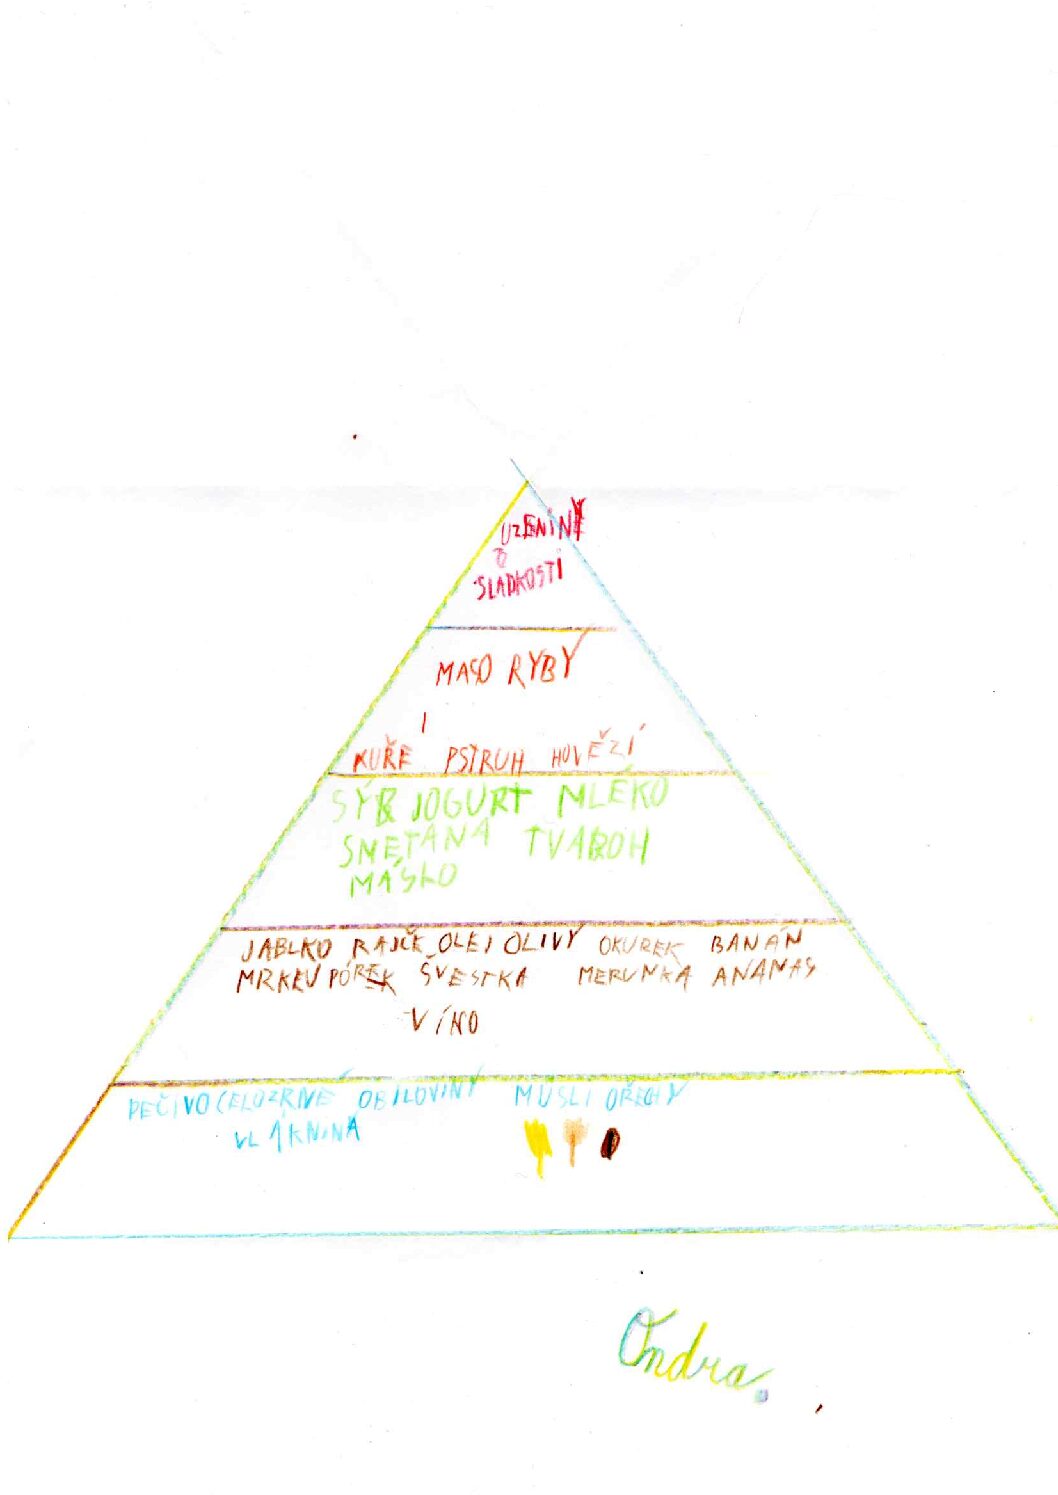 UZENINY
SLADKOSTI
MASO RYBY
KUŘE PSTRUH HOVĚZÍ
SÝR JOGURT MLÉKO
SMETANA TVAROH
MÁSLO
JABLKO RAJČE OLEJ OLIVY OKUREK BANÁN
MRKEV PÓREK ŠVESTKA MERUNKA ANANAS
VÍNO
PEČIVO CELOZRNÉ OBILOVINY MUSLI OŘECHY
VLÁKNINA
Ondra.